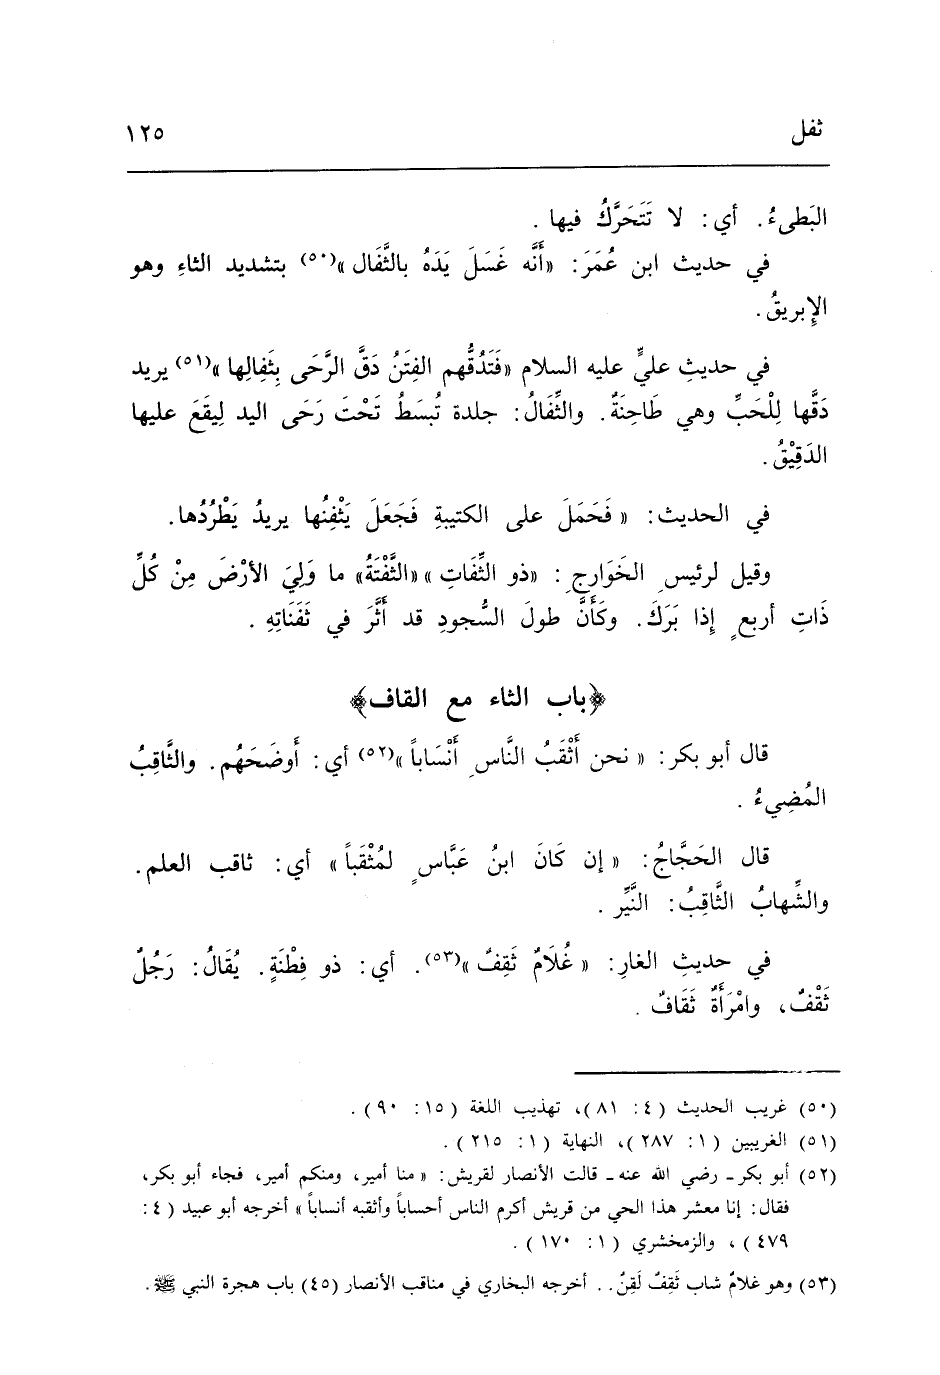 ثفل ١٢٥
البَطىءُ. أي: لا تَتَحَرَّكُ فيها .
في حديث ابن عُمَرَ: «أَنَّه غَسَلَ يَدَهُ بالثَّفَال»(٥٠) بتشديد الثاءِ وهو
الإِبريقُ.
في حديثِ عليٍّ عليه السلام «فَتَدُقُّهم الفِتَنُ دَقَّ الرَّحَى بِثَفِالِها»(٥١) يريد
دَقَّها لِلْحَبِّ وهي طَاحِنَةٌ. والثِّفَالُ: جلدة تُبسَطُ تَحْتَ رَحَى اليد لِيقَعَ عليها
الدَقِيْقُ.
في الحديث: « فَحَمَلَ على الكتيبةِ فَجَعَلَ يَثْفِنُها يريدُ يَطْرُدُها.
وقيل لرئيسِ الخَوَارجِ: «ذو الثِّفَاتِ» «الثَّفْتَةُ» ما وَلِيَ الأرْضَ مِنْ كُلِّ
ذَاتِ أربعٍ إِذا بَرَكَ. وكَأَنَّ طولَ السُّجودِ قد أَثَّرَ في ثَفَنَاتِهِ .
﴿باب الثاء مع القاف﴾
قال أبو بكر: « نحن أَثْقَبُ النَّاسِ أَنْسَاباً »(٥٢) أي: أَوضَحَهُم. والثَّاقِبُ
المُضِيءُ .
قال الحَجَّاجُ: « إن كَانَ ابنُ عَبَّاسٍ لمُثْقَباً » أي: ثاقب العلم.
والشِّهابُ الثَّاقِبُ: النَّيِّر .
في حديثِ الغارِ: « غُلَامٌ ثَقِفٌ »(٥٣). أي: ذو فِطْنَةٍ. يُقَالُ: رَجُلٌ
ثَقْفٌ، وامْرَأَةٌ ثَقَافٌ .
(٥٠) غريب الحديث (٤: ٨١)، تهذيب اللغة (١٥: ٩٠).
(٥١) الغريبين (١: ٢٨٧)، النهاية (١: ٢١٥).
(٥٢) أبو بكر - رضي الله عنه - قالت الأنصار لقريش: « منا أمير، ومنكم أمير، فجاء أبو بكر،
فقال: إنا معشر هذا الحي من قريش أكرم الناس أحساباً وأثقبه أنساباً » أخرجه أبو عبيد (٤:
٤٧٩)، والزمخشري (١: ١٧٠).
(٥٣) وهو غلامٌ شاب ثَقِفٌ لَقِنٌ.. أخرجه البخاري في مناقب الأنصار (٤٥) باب هجرة النبي ﷺ.